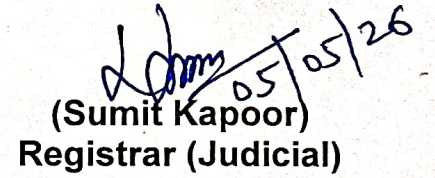 05/05/26
(Sumit Kapoor)
Registrar (Judicial)